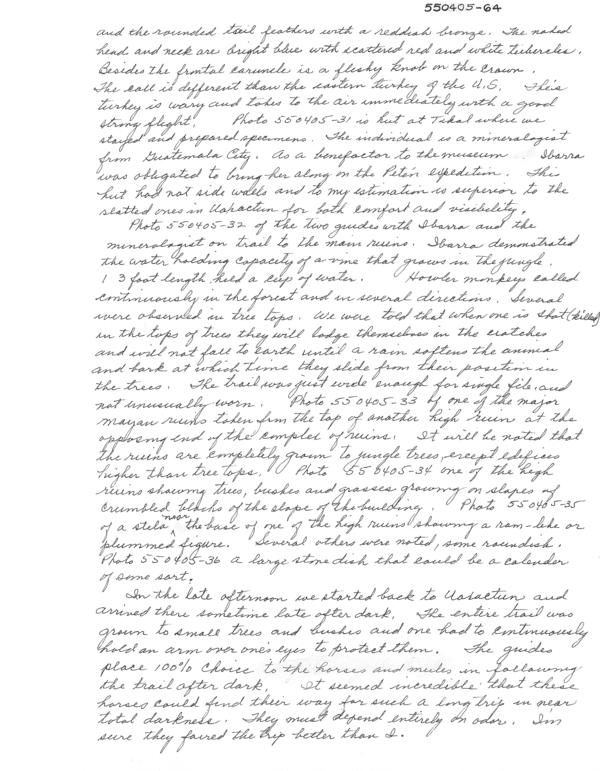 550405-64
and the rounded tail feathers with a reddish bronze. The naked
head and neck are bright blue with scattered red and white tubercles.
Besides the frontal caruncle is a fleshy knob on the crown.
The call is different than the eastern turkey of the U.S. This
turkey is wary and takes to the air immediately with a good
strong flight. Photo 550405-31 is hut at Tikal where we
stayed and prepared specimens. The individual is a mineralogist
from Guatemala City. As a benefactor to the museum Ibarra
was obligated to bring her along on the Petén expedition. This
hut had not side walls and to my estimation is superior to the
slatted ones in Uaxactun for both comfort and visibility.
Photo 550405-32 of the two guides with Ibarra and the
minerologist on trail to the main ruins. Ibarra demonstrated
the water holding capacity of a vine that grows in the jungle.
1 3 foot length held a cup of water. Howler monkeys called
continuously in the forest and in several directions. Several
were observed in tree tops. We were told that when one is shot (killed)
in the tops of trees they will lodge themselves in the crotches
and will not fall to earth until a rain softens the animal
and bark at which time they slide from their position in
the trees. The trail was just wide enough for single file, and
not unusually worn. Photo 550405-33 of one of the major
mayan ruins taken frm the top of another high ruin at the
opposing end of the complex of ruins. It will be noted that
the ruins are completely grown to jungle trees, except edifices
higher than tree tops. Photo 550405-34 one of the high
ruins showing trees, bushes and grasses growing on slopes of
crumbled blocks of the slope of the building. Photo 550405-35
of a stela near the base of one of the high ruins showing a ram-like or
plummed figure. Several others were noted, some roundish.
Photo 550405-36 a large stone dish that could be a calender
of some sort.
In the late afternoon we started back to Uaxactun and
arrived there sometime late after dark. The entire trail was
grown to small trees and bushes and one had to continuously
hold an arm over one's eyes to protect them. The guides
place 100% choice to the horses and mules in following
the trail after dark. It seemed incredible that these
horses could find their way for such a long trip in near
total darkness. They must depend entirely on odor. I'm
sure they faired the trip better than I.